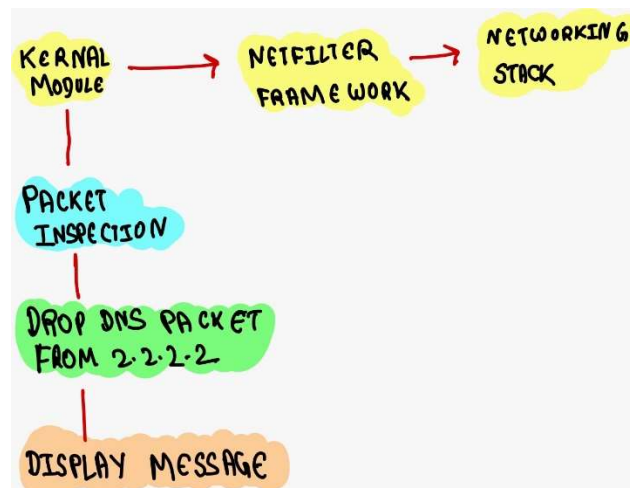 KERNAL
MODULE
NETFILTER
FRAMEWORK
NETWORKING
STACK
PACKET
INSPECTION
DROP DNS PACKET
FROM 2.2.2.2
DISPLAY MESSAGE